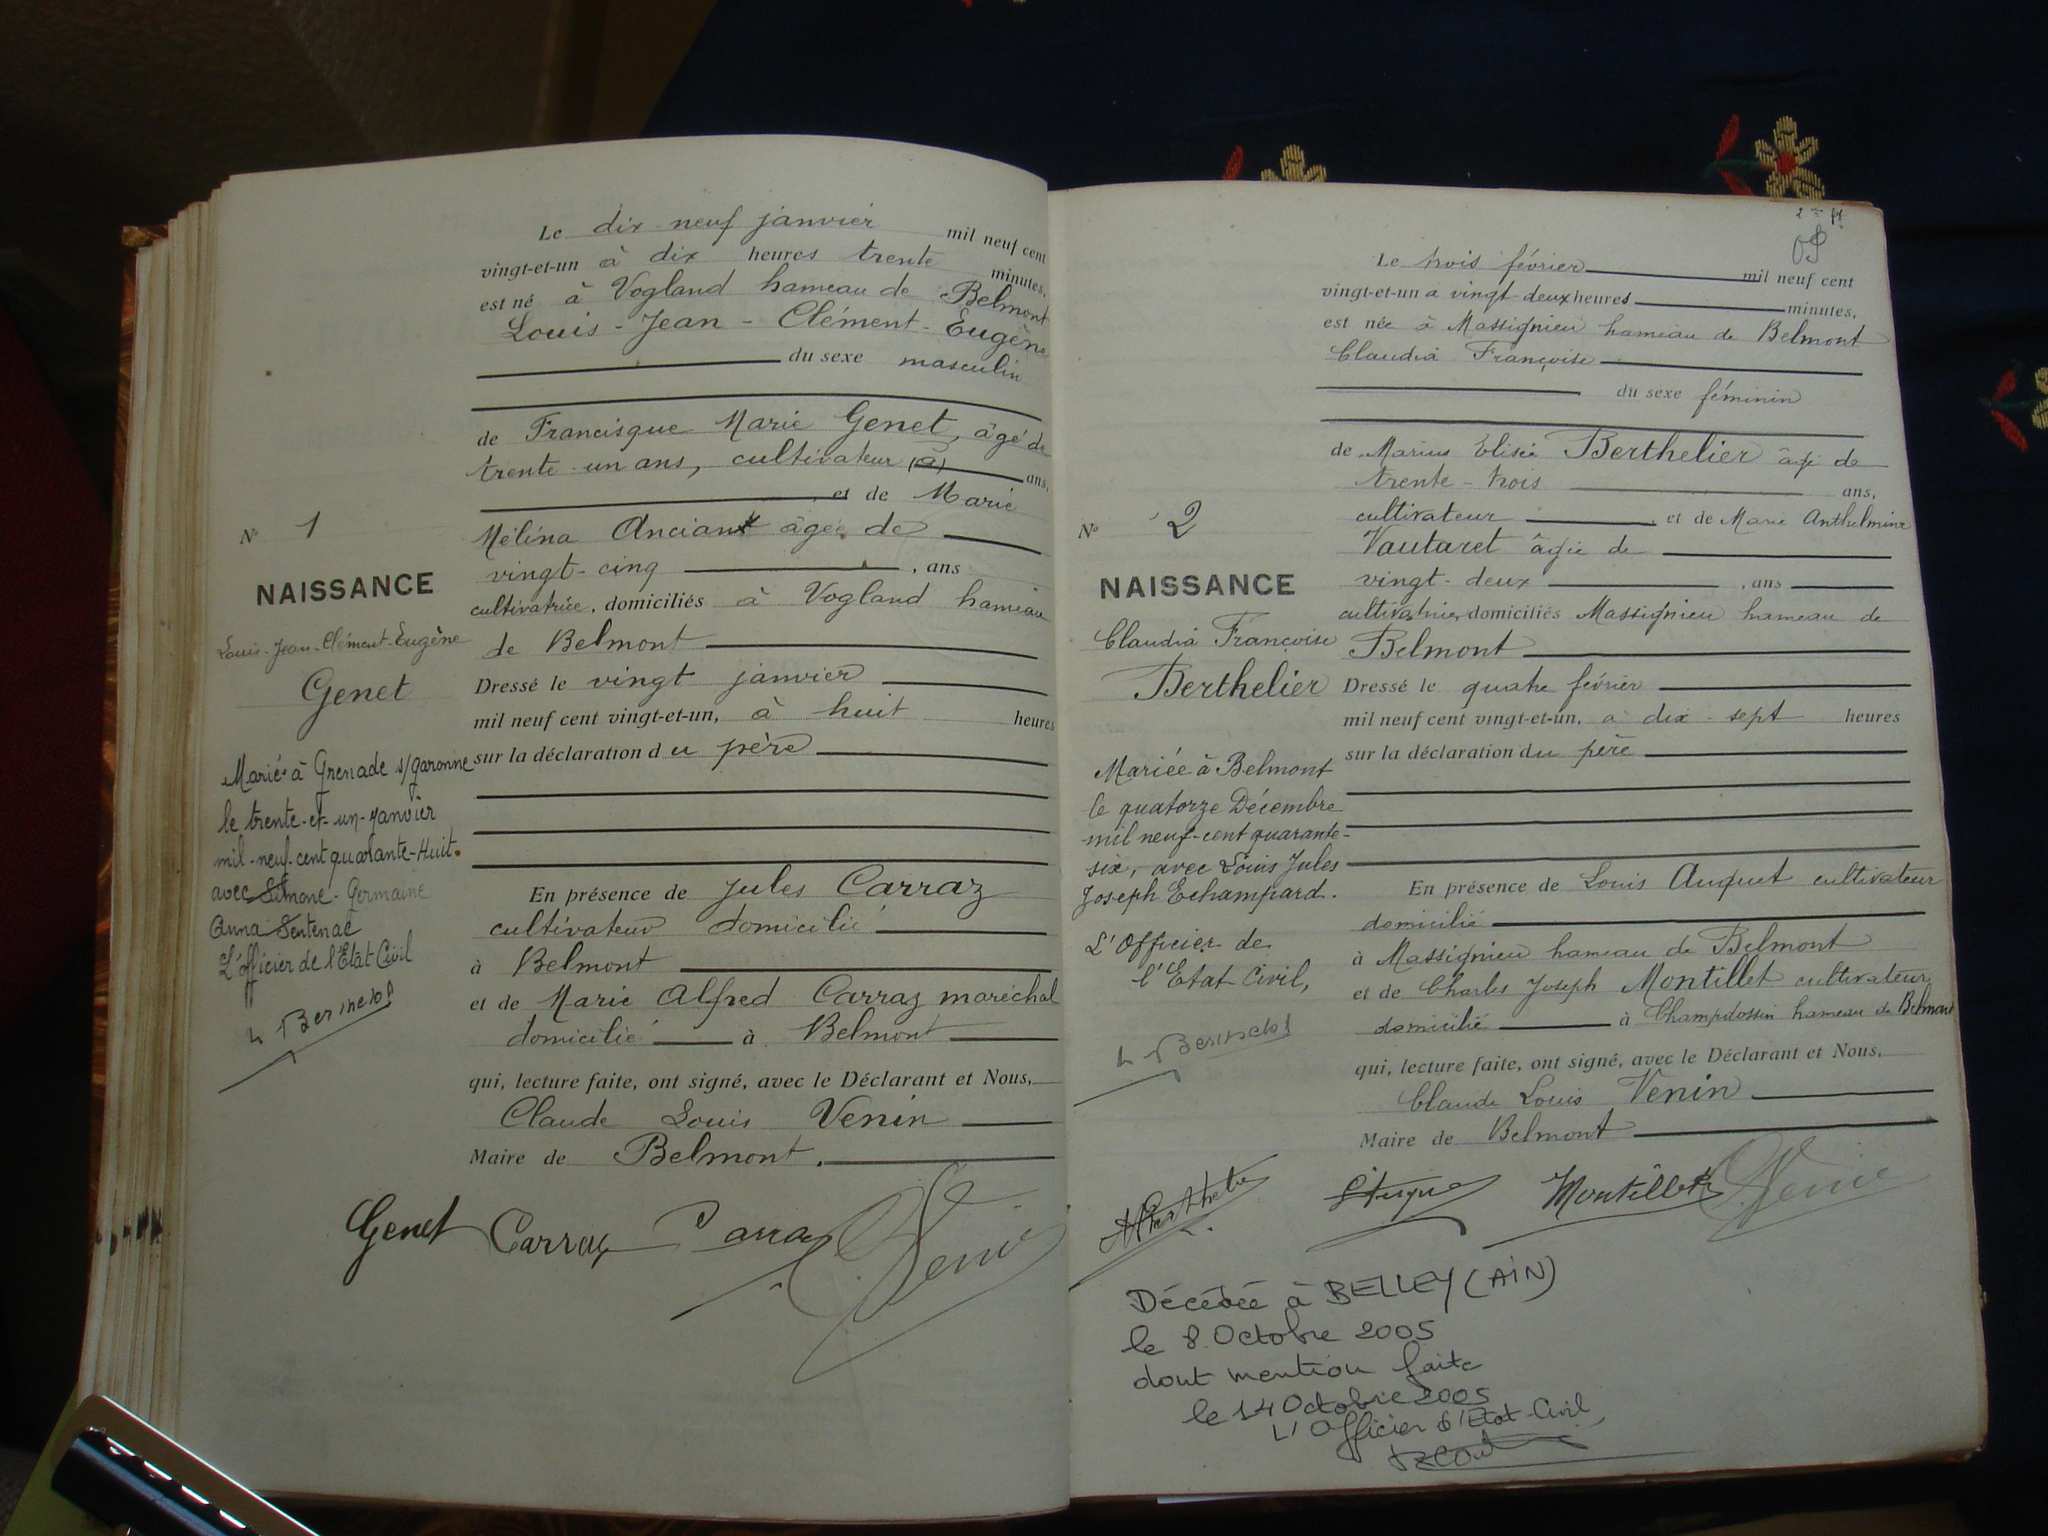 Le dix neuf janvier mil neuf cent
vingt-et-un à dix heures trente minutes,
est né à Vogland hameau de Belmont
Louis-Jean-Clément-Eugène
du sexe masculin
de Francisque Marie Genet, âgé de
trente un ans, cultivateur (a) ans,
et de Marie
Mélina Anciant âgée de
vingt-cinq , ans
cultivatrice, domiciliés à Vogland hameau
de Belmont
Dressé le vingt janvier
mil neuf cent vingt-et-un, à huit heures
sur la déclaration du père
En présence de Jules Carraz
cultivateur domicilié
à Belmont
et de Marie Alfred Carraz maréchal
domicilié à Belmont
qui, lecture faite, ont signé, avec le Déclarant et Nous,
Claude Louis Venin
Maire de Belmont.
Genet Carraz Carraz Venin
N° 1
NAISSANCE
Louis-Jean-Clément-Eugène
Genet
Marié à Grenade s/garonne
le trente-et-un-janvier
mil-neuf-cent quarante-Huit.
avec Simone-Germaine
Anna Sentenac
L'officier de l'Etat Civil
2
Le trois février mil neuf cent
vingt-et-un à vingt-deux heures minutes,
est née à Massignieu hameau de Belmont
Claudia Françoise
du sexe féminin
de Marius Elisée Berthelier âgé de
trente-trois ans,
cultivateur et de Marie Anthelmine
Vautaret âgée de
vingt-deux , ans
cultivatrice domiciliés Massignieu hameau de
Belmont
Dressé le quatre février
mil neuf cent vingt-et-un, à dix-sept heures
sur la déclaration du père
En présence de Louis Auguet cultivateur
domicilié
à Massignieu hameau de Belmont
et de Charles Joseph Montillet cultivateur
domicilié à Champdossin hameau de Belmont
qui, lecture faite, ont signé, avec le Déclarant et Nous,
Claude Louis Venin
Maire de Belmont
Montillet Venin
N° 2
NAISSANCE
Claudia Françoise
Berthelier
Mariée à Belmont
le quatorze Décembre
mil neuf-cent quarante-
six, avec Louis Jules
Joseph Echampard.
L'Officier de
l'Etat Civil,
Décédée à BELLEY (AIN)
le 8 Octobre 2005
dont mention faite
le 14 Octobre 2005
L'Officier d'Etat-Civil,